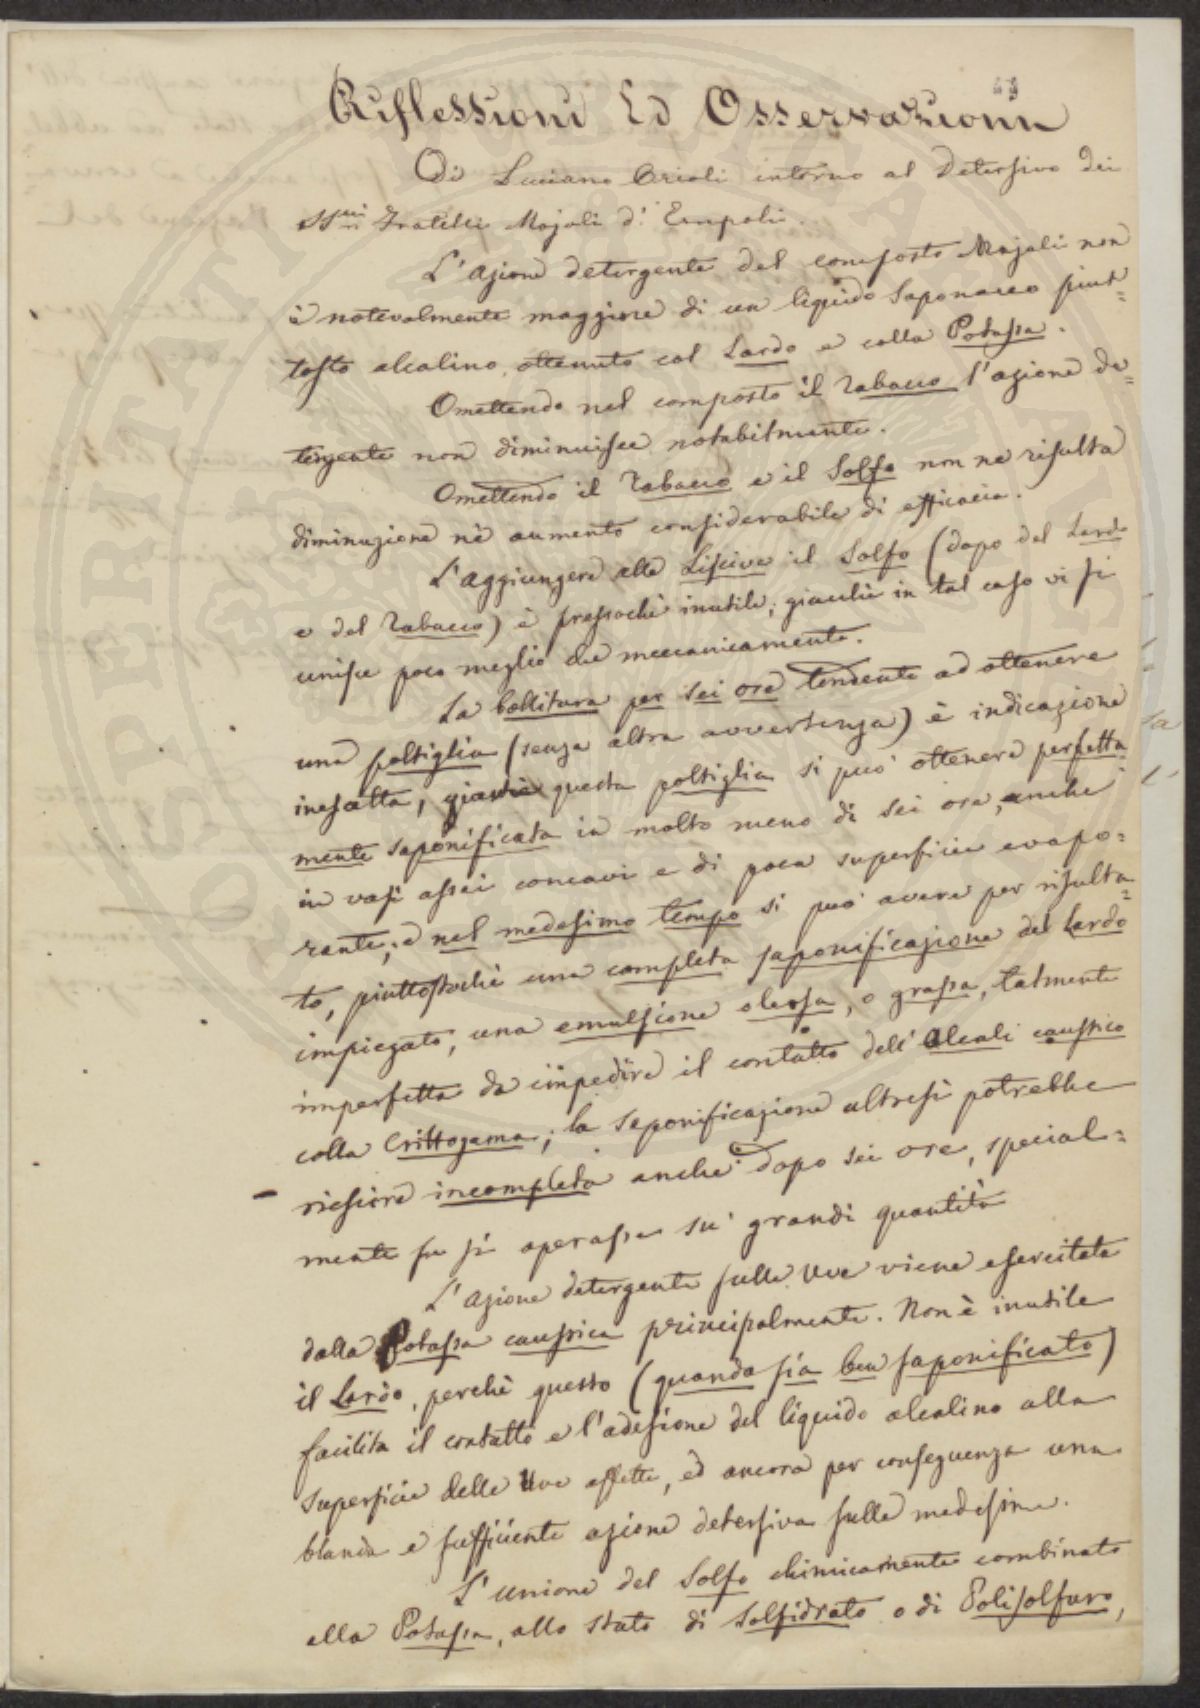 Riflessioni Ed Osservazioni
Di Luciano Orioli intorno al Detersivo dei
SSri Fratelli Majoli d'Empoli.
L'Azione detergente del composto Majoli non
è notevolmente maggiore di un liquido Saponaceo piut=
tosto alcalino, ottenuto col Lardo e colla Potassa.
Omettendo nel composto il Tabacco l'azione de=
tergente non diminuisce notabilmente.
Omettendo il Tabacco e il Solfo non ne risulta
diminuzione nè aumento considerabile di efficacia.
L'Aggiungere alla Lisciva il Solfo (dopo del Lardo
e del Tabacco) è pressochè inutile; giacchè in tal caso vi si
unisce poco meglio che meccanicamente.
La bollitura per sei ore tendente ad ottenere
una poltiglia (senza altra avvertenza) è indicazione
inesatta, giacchè questa poltiglia si può ottenere perfetta=
mente saponificata in molto meno di sei ore, anche
in vasi assai concavi e di poca superficie evapo=
rante; e nel medesimo tempo si può avere per risulta=
to, piuttostochè una completa saponificazione del Lardo
impiegato, una emulsione oleosa, o grassa, talmente
imperfetta da impedire il contatto dell'Alcali caustico
colla Crittogama; la saponificazione altresì potrebbe
riescire incompleta anche dopo sei ore, special=
mente se si operasse su' grandi quantità
L'Azione detergente sulle Uve viene esercitata
dalla Potassa caustica principalmente. Non è inutile
il Lardo, perchè questo (quando sia ben saponificato)
facilita il contatto e l'adesione del liquido alcalino alla
superficie delle Uve affette, ed ancora per conseguenza una
blanda e sufficiente azione detersiva sulle medesime.
L'unione del Solfo chimicamente combinato
alla Potassa, allo stato di Solfidrato o di Polisolfuro,